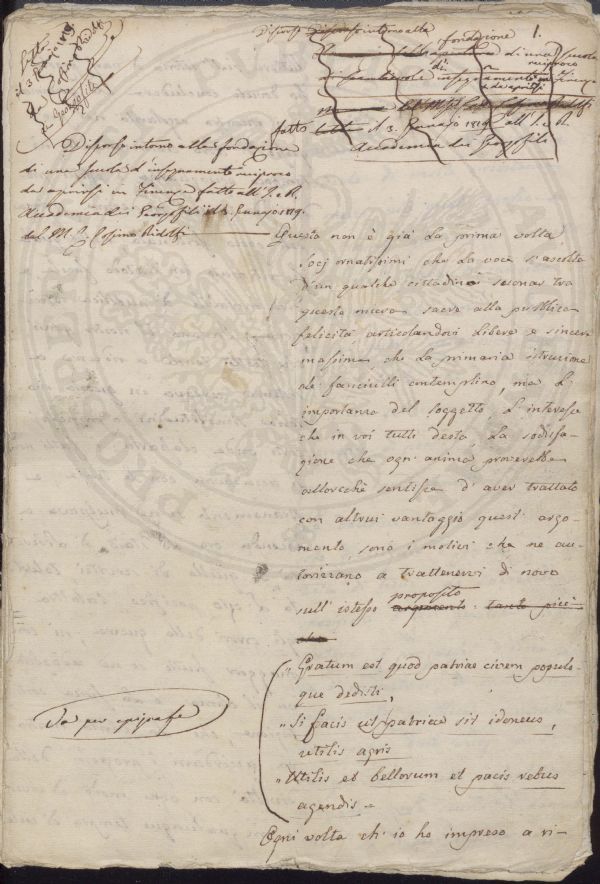 Letto
il 3 Genajo 1819.
Georgofili
Discorso intorno alla fondazione
di una Scuola d'insegnamento reciproco
da aprirsi in Firenze fatto all'I. R.
Accademia dei Georgofili il 3. Genajo 1819.
del M. Cosimo Ridolfi
1.
Discorso Discorso intorno alla
fondazione
di una Scuola
di reciproco
insegnamento in Firenze
da aprirsi
fatto il 3. Genajo 1819 all'I. R.
Accademia dei Georgofili
Questa non è già la prima volta,
Socj ornatissimi che la voce s'ascolta
d'un qualche cittadino suonar tra
queste mura sacre alla pubblica
felicità articolandovi libere e sincere
massime che la primaria istruzione
de' fanciulli contemplino, ma l'
importanza del soggetto, l'interesse
che in voi tutti desta, la sodisfa-
zione che ogn'anima proverebbe
allorchè sentisse d'aver trattato
con altrui vantaggio quest'argo-
mento sono i motivi che ne au-
torizzano a trattenervi di novo
sull'istesso proposito argomento. tanto più
che
"Gratum est quod patriae civem populo-
que dedisti,
"Si facis ut patriae sit idoneus,
utilis agris
"Utilis et bellorum et pacis rebus
agendis.
Va per epigrafe
Ogni volta ch'io ho impreso a ri-